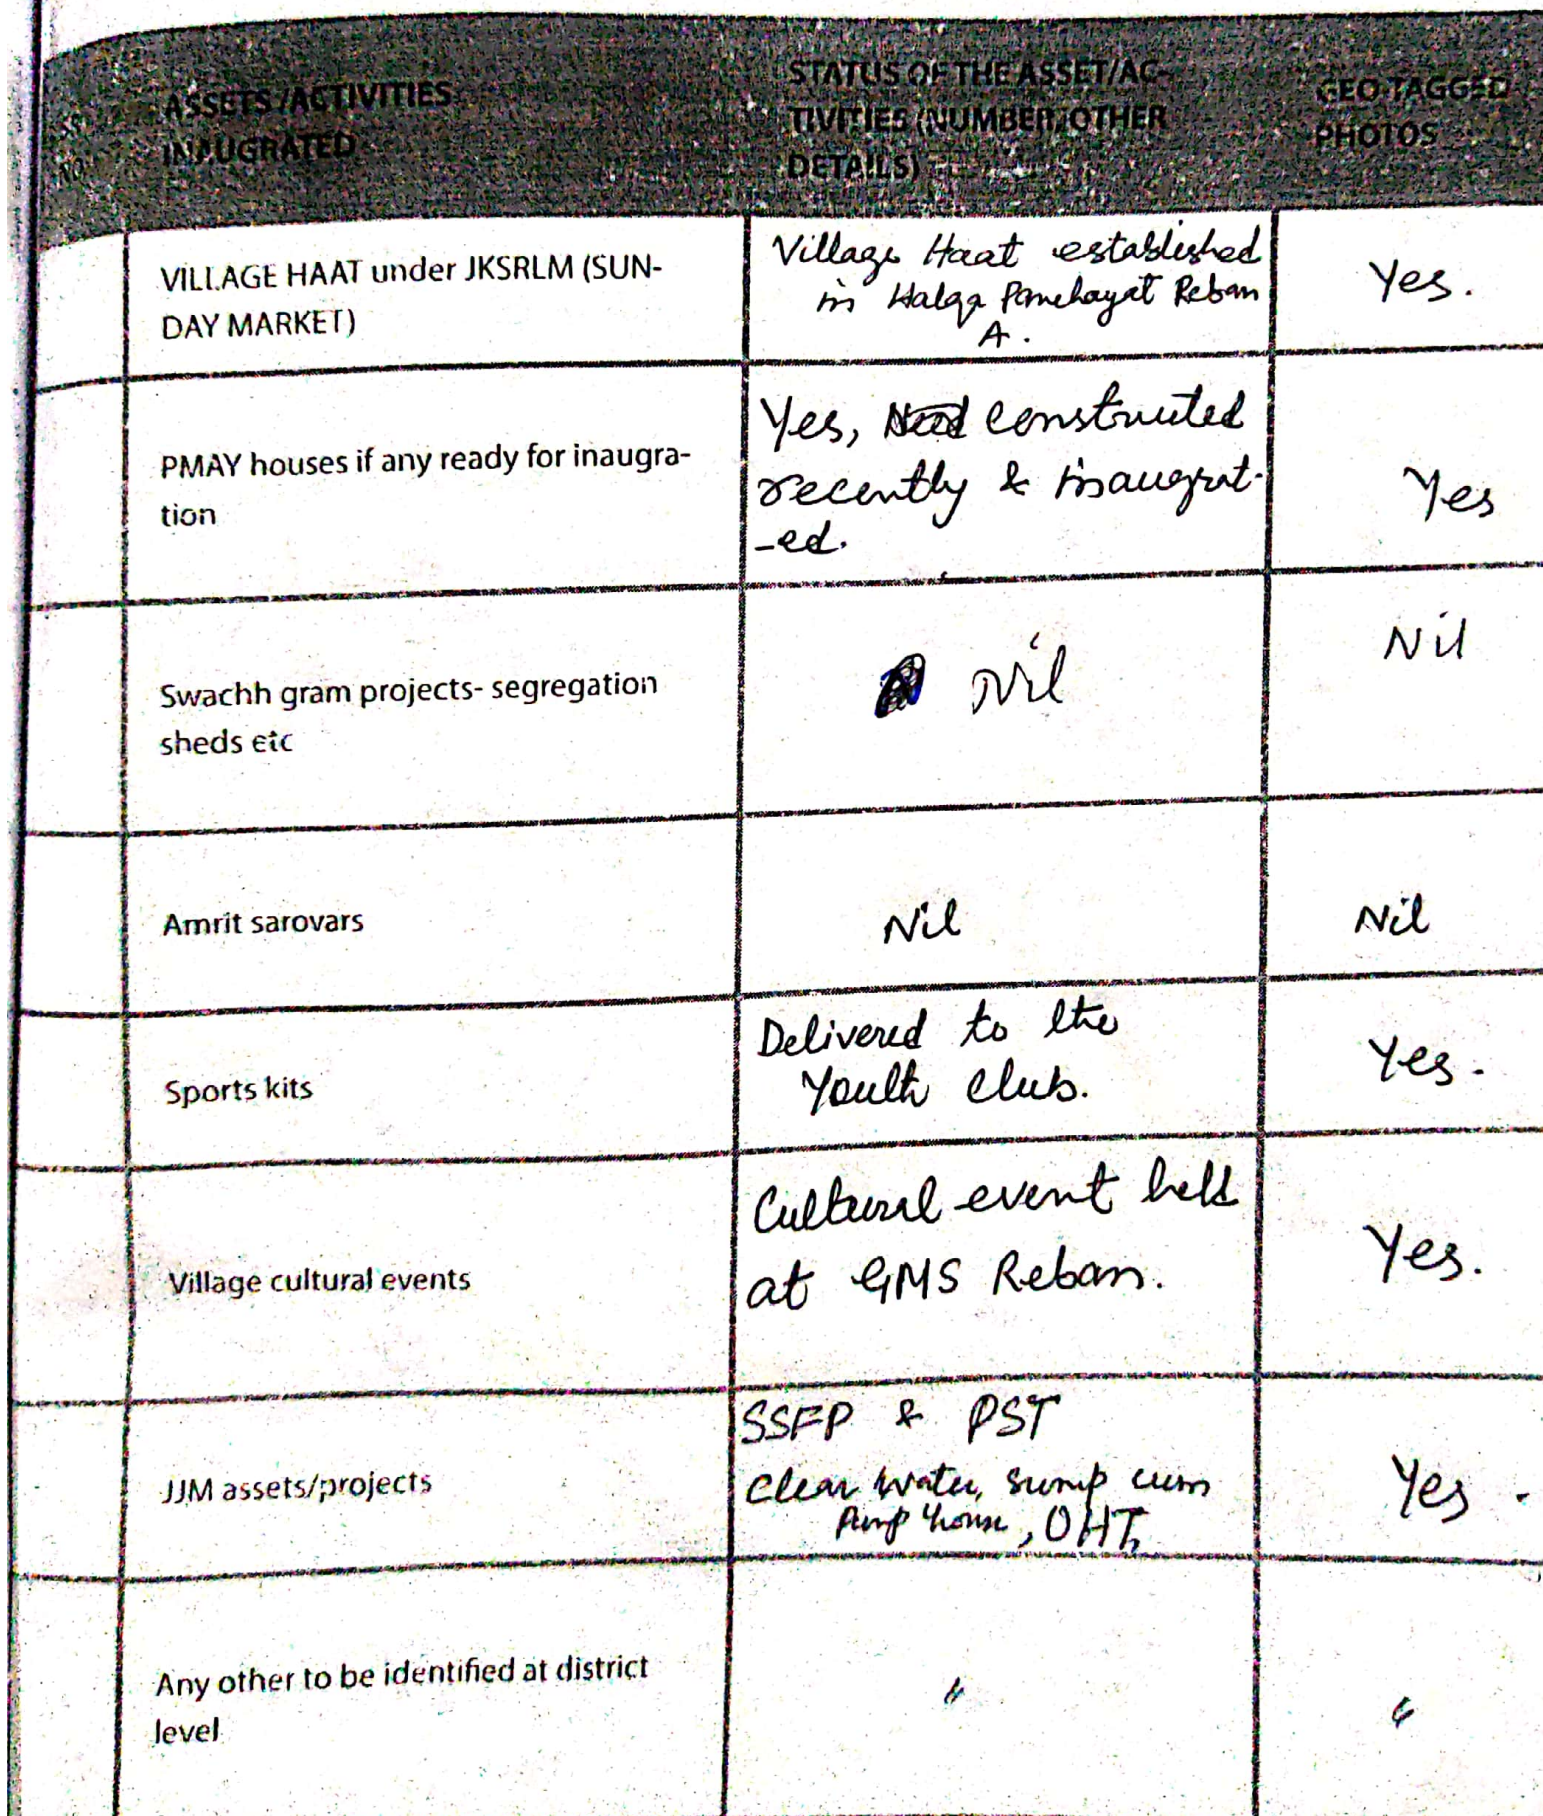 SR. NO.
ASSETS /ACTIVITIES
INAUGRATED
STATUS OF THE ASSET/AC-
TIVITIES (NUMBER/OTHER
DETAILS)
GEO TAGGED
PHOTOS
VILLAGE HAAT under JKSRLM (SUN-
DAY MARKET)
Village Haat established
in Halqa Panchayat Reban
A.
Yes.
PMAY houses if any ready for inaugra-
tion
Yes, constructed
recently & inaugrat-
-ed.
Yes
Swachh gram projects- segregation
sheds etc
Nil
Nil
Amrit sarovars
Nil
Nil
Sports kits
Delivered to the
Youth Club.
Yes.
Village cultural events
Cultural event held
at GMS Reban.
Yes.
JJM assets/projects
SSFP & PST
Clear Water, Sump cum
Pump house, OHT,
Yes.
Any other to be identified at district
level